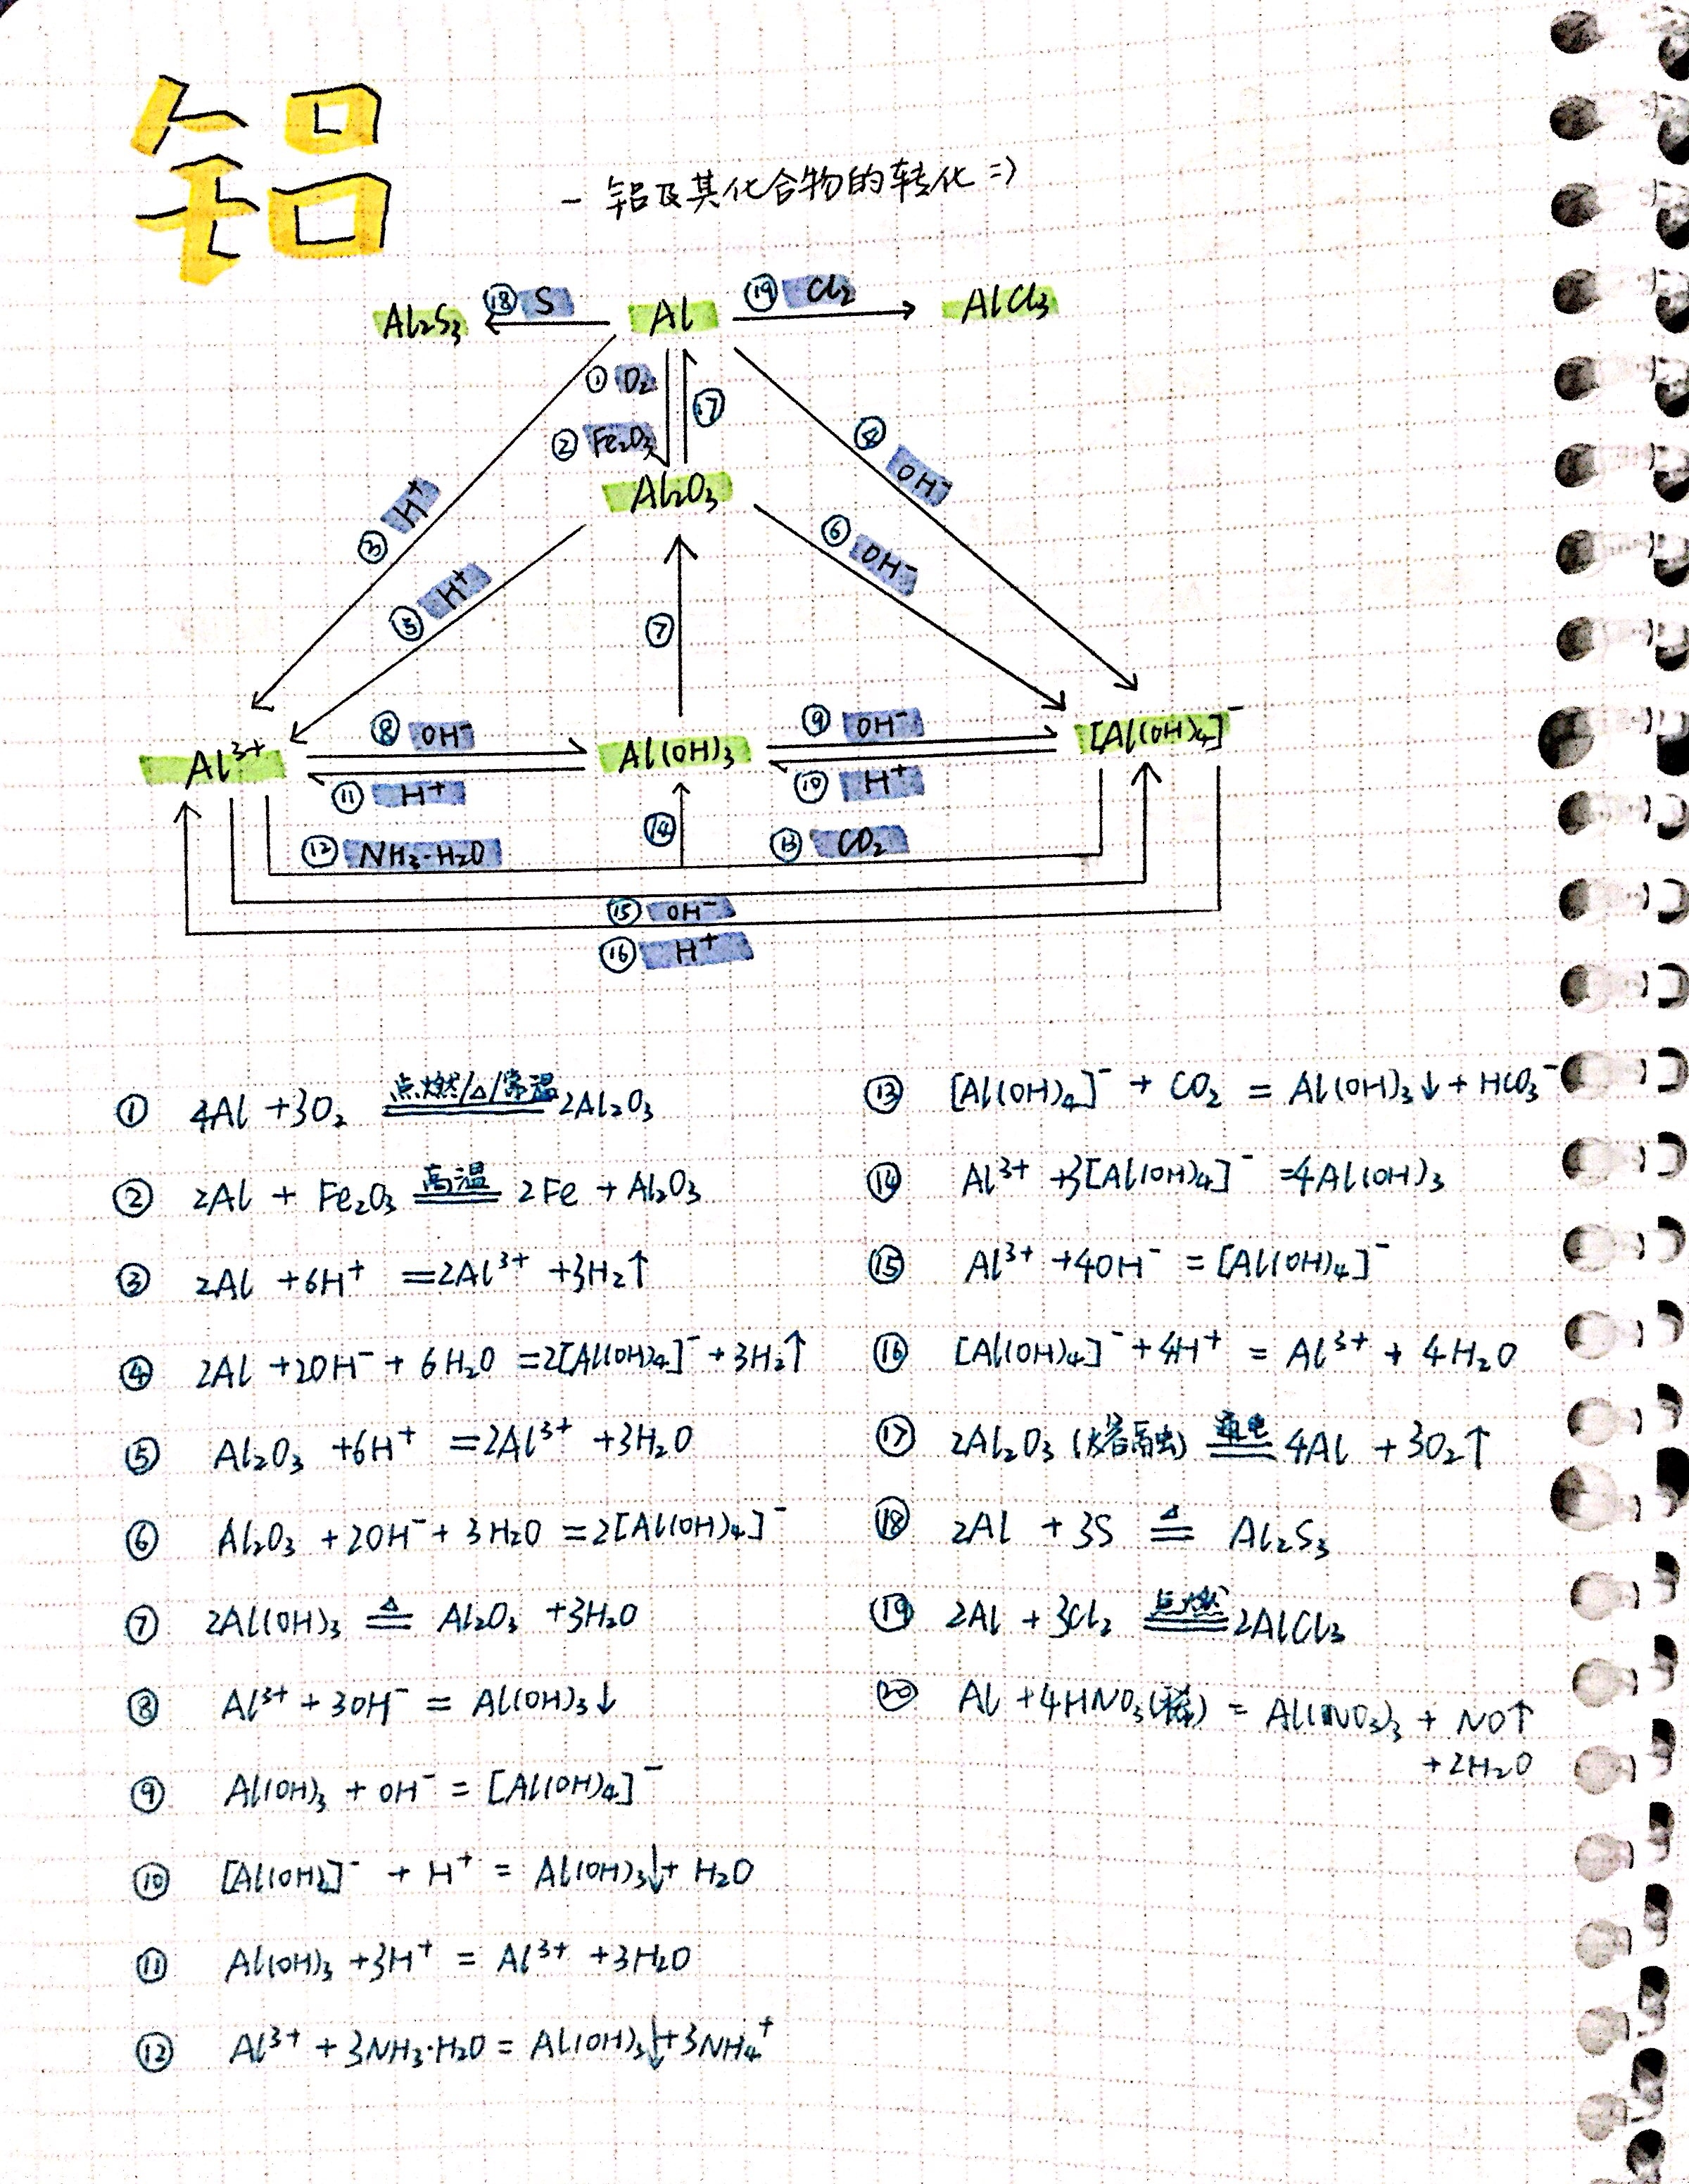 铝
- 铝及其化合物的转化 =>
Al₂S₃ ⑱ S Al ⑲ Cl₂ AlCl₃
① O₂
⑰
② Fe₂O₃
④ OH⁻
Al₂O₃
③ H⁺
⑥ OH⁻
⑤ H⁺
⑦
Al³⁺ ⑧ OH⁻ Al(OH)₃ ⑨ OH⁻ [Al(OH)₄]⁻
⑪ H⁺ ⑩ H⁺
⑫ NH₃·H₂O ⑭ ⑬ CO₂
⑮ OH⁻
⑯ H⁺
① 4Al + 3O₂ 点燃/△/常温 2Al₂O₃
② 2Al + Fe₂O₃ 高温 2Fe + Al₂O₃
③ 2Al + 6H⁺ = 2Al³⁺ + 3H₂↑
④ 2Al + 2OH⁻ + 6H₂O = 2[Al(OH)₄]⁻ + 3H₂↑
⑤ Al₂O₃ + 6H⁺ = 2Al³⁺ + 3H₂O
⑥ Al₂O₃ + 2OH⁻ + 3H₂O = 2[Al(OH)₄]⁻
⑦ 2Al(OH)₃ △ Al₂O₃ + 3H₂O
⑧ Al³⁺ + 3OH⁻ = Al(OH)₃↓
⑨ Al(OH)₃ + OH⁻ = [Al(OH)₄]⁻
⑩ [Al(OH)₄]⁻ + H⁺ = Al(OH)₃↓ + H₂O
⑪ Al(OH)₃ + 3H⁺ = Al³⁺ + 3H₂O
⑫ Al³⁺ + 3NH₃·H₂O = Al(OH)₃↓ + 3NH₄⁺
⑬ [Al(OH)₄]⁻ + CO₂ = Al(OH)₃↓ + HCO₃⁻
⑭ Al³⁺ + 3[Al(OH)₄]⁻ = 4Al(OH)₃
⑮ Al³⁺ + 4OH⁻ = [Al(OH)₄]⁻
⑯ [Al(OH)₄]⁻ + 4H⁺ = Al³⁺ + 4H₂O
⑰ 2Al₂O₃ (熔融) 通电 4Al + 3O₂↑
⑱ 2Al + 3S △ Al₂S₃
⑲ 2Al + 3Cl₂ 点燃 2AlCl₃
⑳ Al + 4HNO₃(稀) = Al(NO₃)₃ + NO↑
+ 2H₂O